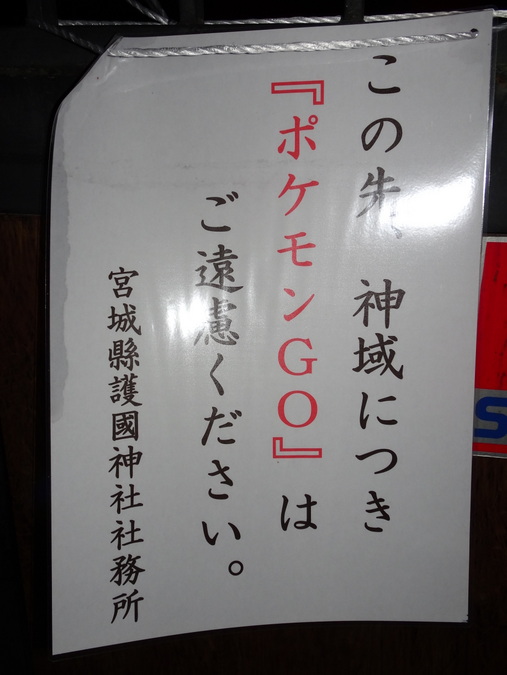 この先、神域につき
『ポケモンGO』は
ご遠慮ください。
宮城縣護國神社社務所
S